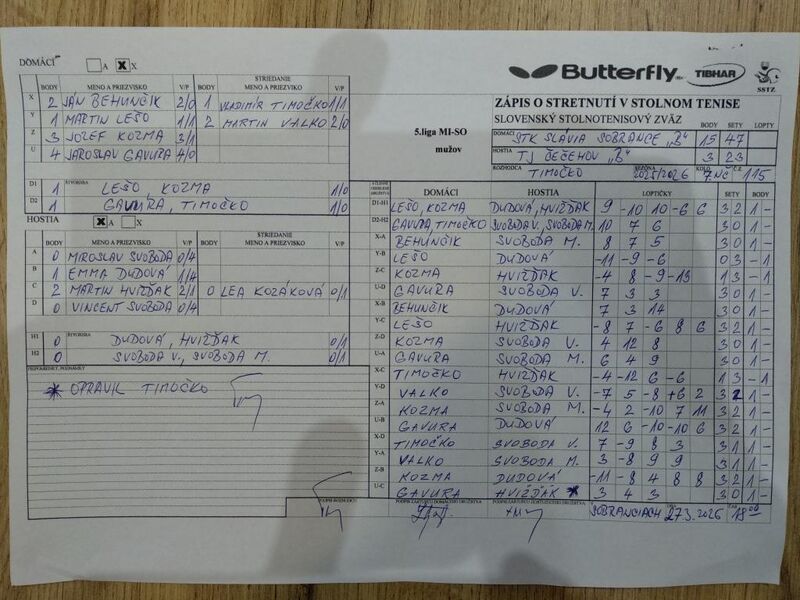 DOMÁCI A X X
BODY MENO A PRIEZVISKO V/P BODY STRIEDANIE MENO A PRIEZVISKO V/P
X 2 JÁN BEHUNČIK 2/0 1 VLADIMÍR TIMOČKO 1/1
Y 1 MARTIN LEŠO 1/1 2 MARTIN VALKO 2/0
Z 3 JOZEF KOZMA 3/1
U 4 JAROSLAV GAVURA 4/0
D1 1 ŠTVORHRA LEŠO, KOZMA 1/0
D2 1 GAVURA, TIMOČKO 1/0
HOSTIA X A X
BODY MENO A PRIEZVISKO V/P BODY STRIEDANIE MENO A PRIEZVISKO V/P
A 0 MIROSLAV SVOBODA 0/4
B 1 EMMA DUDOVÁ 1/4
C 2 MARTIN HVIŽĎAK 2/1 0 LEA KOZÁKOVÁ 0/1
D 0 VINCENT SVOBODA 0/4
H1 0 ŠTVORHRA DUDOVÁ, HVIŽĎAK 0/1
H2 0 SVOBODA V., SVOBODA M. 0/1
PRIPOMIENKY, POZNÁMKY
* OPRAVIL TIMOČKO
PODPIS ROZHODCU
Butterfly TIBHAR SSTZ
5.liga MI-SO
mužov
ZÁPIS O STRETNUTÍ V STOLNOM TENISE
SLOVENSKÝ STOLNOTENISOVÝ ZVÄZ
BODY SETY LOPTY
DOMÁCI STK SLÁVIA SOBRANCE „B" 15 47
HOSTIA TJ ČEČEHOV „B" 3 23
ROZHODCA TIMOČKO SEZÓNA 2025/2026 KOLO 7.NČ Č.Z. 115
DOMÁCI HOSTIA LOPTIČKY SETY BODY
D1-H1 LEŠO, KOZMA DUDOVÁ, HVIŽĎAK 9 -10 10 -6 6 3 2 1 -
D2-H2 GAVURA, TIMOČKO SVOBODA V., SVOBODA M. 10 7 6 3 0 1 -
X-A BEHUNČIK SVOBODA M. 8 7 5 3 0 1 -
Y-B LEŠO DUDOVÁ -11 -9 -6 0 3 - 1
Z-C KOZMA HVIŽĎAK -4 8 -9 -13 1 3 - 1
U-D GAVURA SVOBODA V. 7 3 3 3 0 1 -
X-B BEHUNČIK DUDOVÁ 7 3 14 3 0 1 -
Y-C LEŠO HVIŽĎAK -8 7 -6 8 6 3 2 1 -
Z-D KOZMA SVOBODA V. 4 12 8 3 0 1 -
U-A GAVURA SVOBODA M. 6 4 9 3 0 1 -
X-C TIMOČKO HVIŽĎAK -4 -12 6 -6 1 3 - 1
Y-D VALKO SVOBODA V. -7 5 -8 +6 2 3 2 1 -
Z-A KOZMA SVOBODA M. -4 2 -10 7 11 3 2 1 -
U-B GAVURA DUDOVÁ 12 6 -10 -10 6 3 2 1 -
X-D TIMOČKO SVOBODA V. 7 -9 8 3 3 1 1 -
Y-A VALKO SVOBODA M. 3 -8 9 9 3 1 1 -
Z-B KOZMA DUDOVÁ -11 -8 4 8 8 3 2 1 -
U-C GAVURA HVIŽĎAK * 3 4 3 3 0 1 -
PODPIS KAPITÁNA DOMÁCEHO DRUŽSTVA PODPIS KAPITÁNA HOSŤUJÚCEHO DRUŽSTVA SOBRANCIACH 27.3.2026 18 00